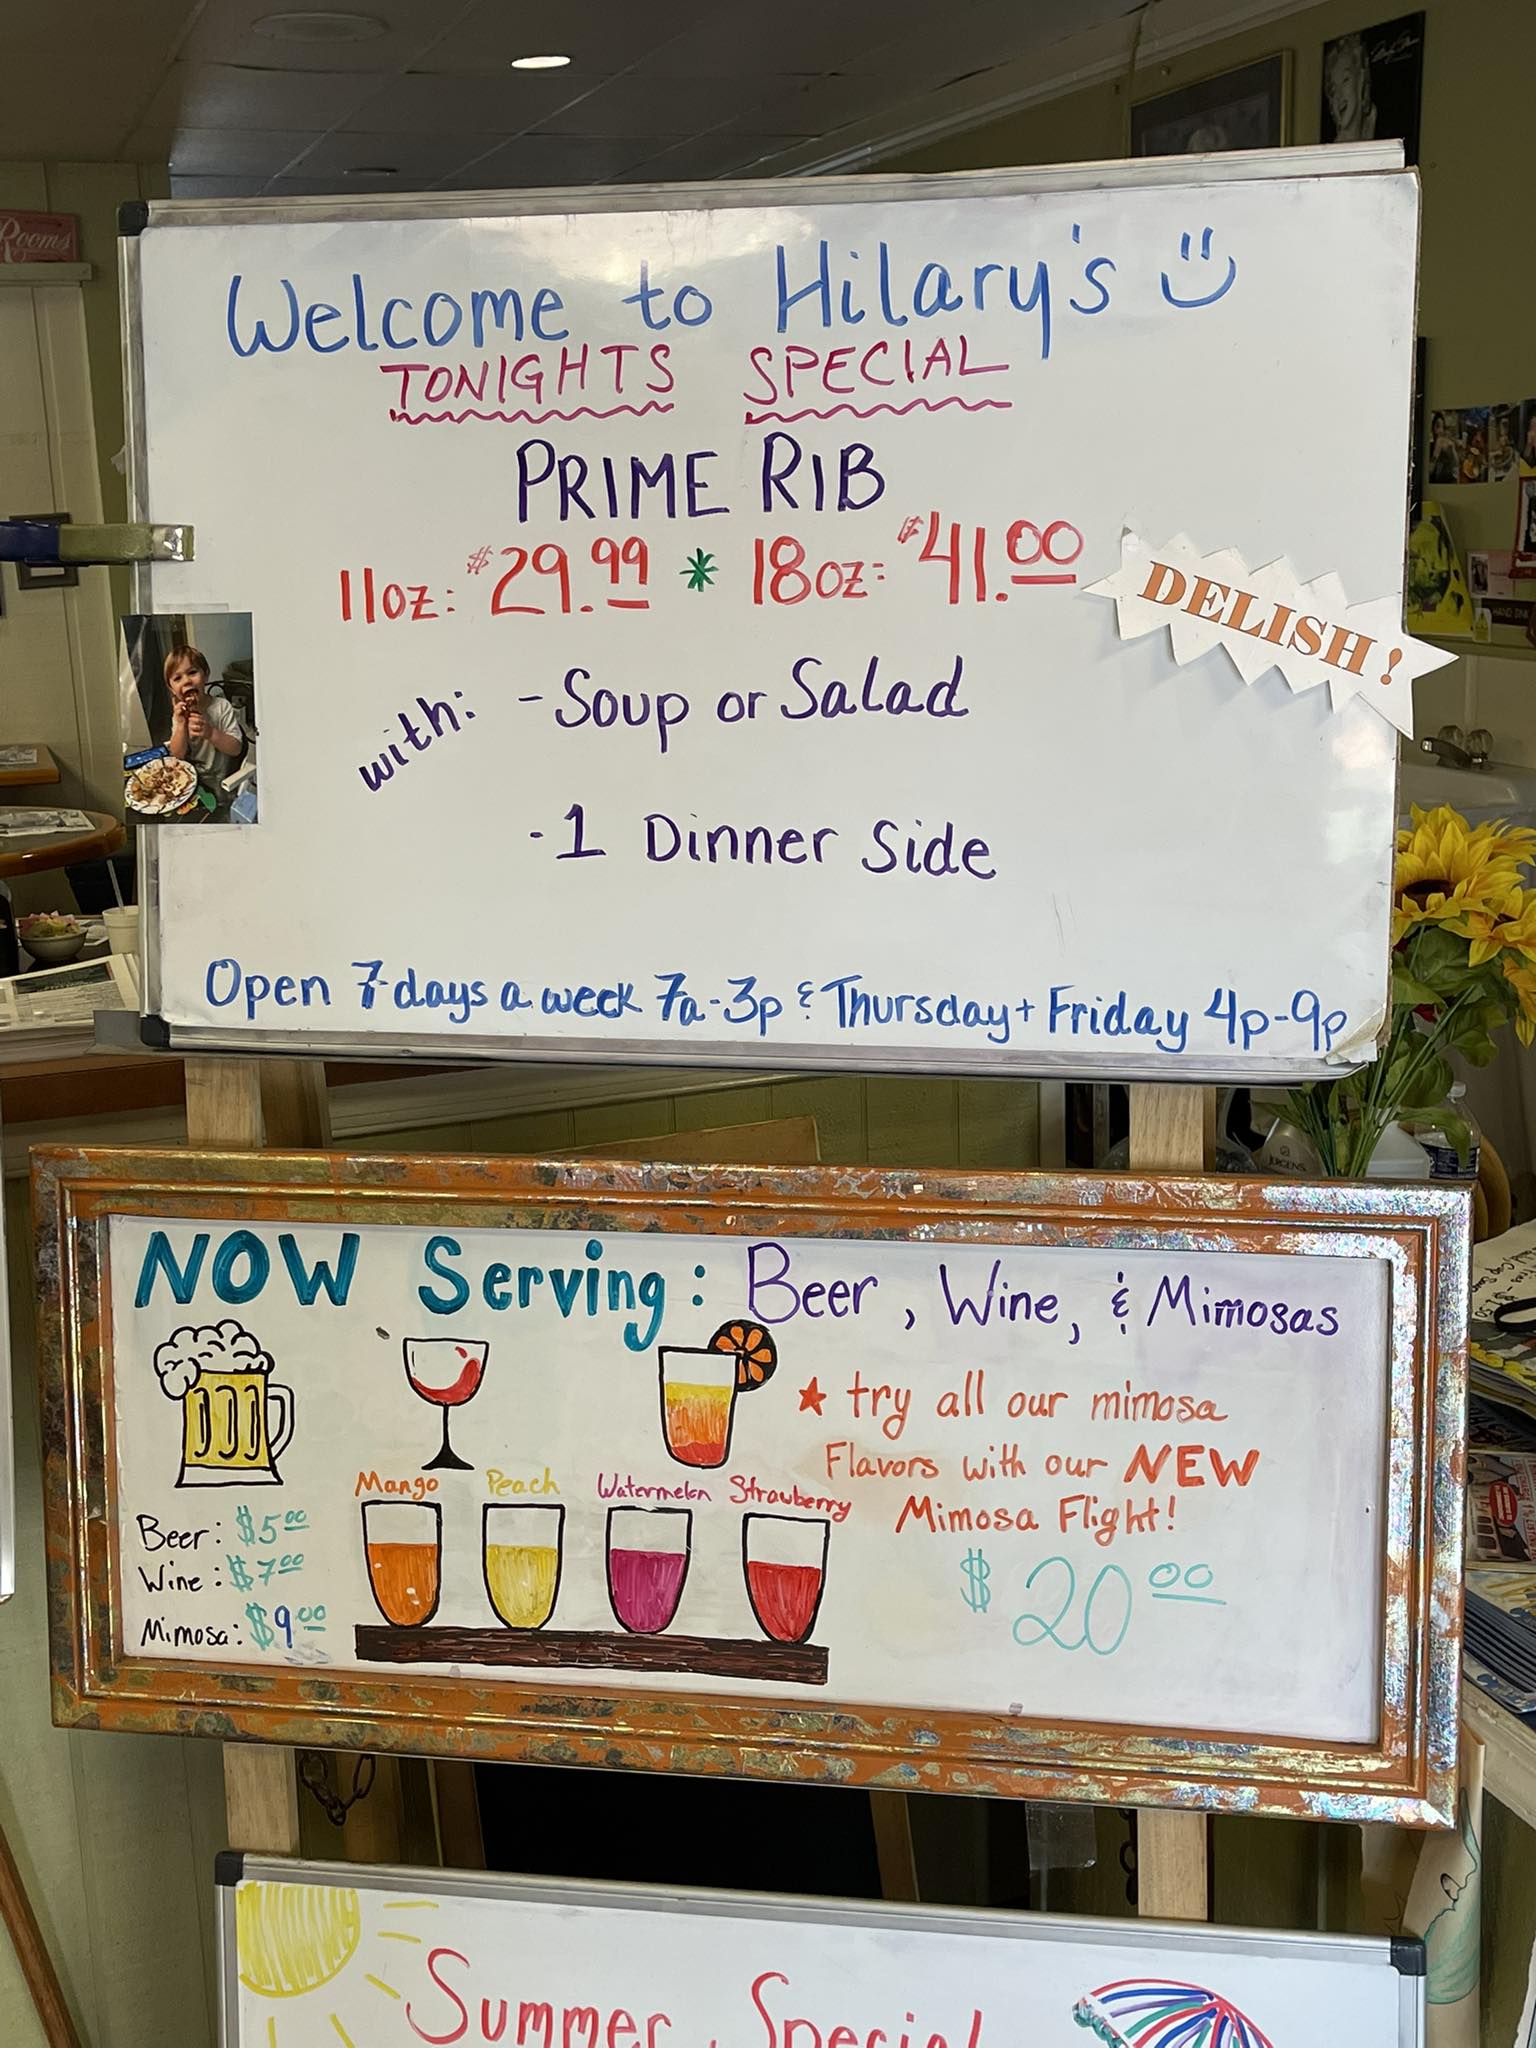 Rooms
Welcome to Hilary's
TONIGHTS SPECIAL
PRIME RIB
11oz: $29.99 * 18oz: $41.00
DELISH!
with: - Soup or Salad
- 1 Dinner Side
Open 7 days a week 7a-3p & Thursday + Friday 4p-9p
JERGENS
NOW Serving: Beer, Wine, & Mimosas
★ try all our mimosa
Flavors with our NEW
Mimosa Flight!
$20.00
Mango Peach Watermelon Strawberry
Beer: $5.00
Wine: $7.00
Mimosa: $9.00
Summer Special